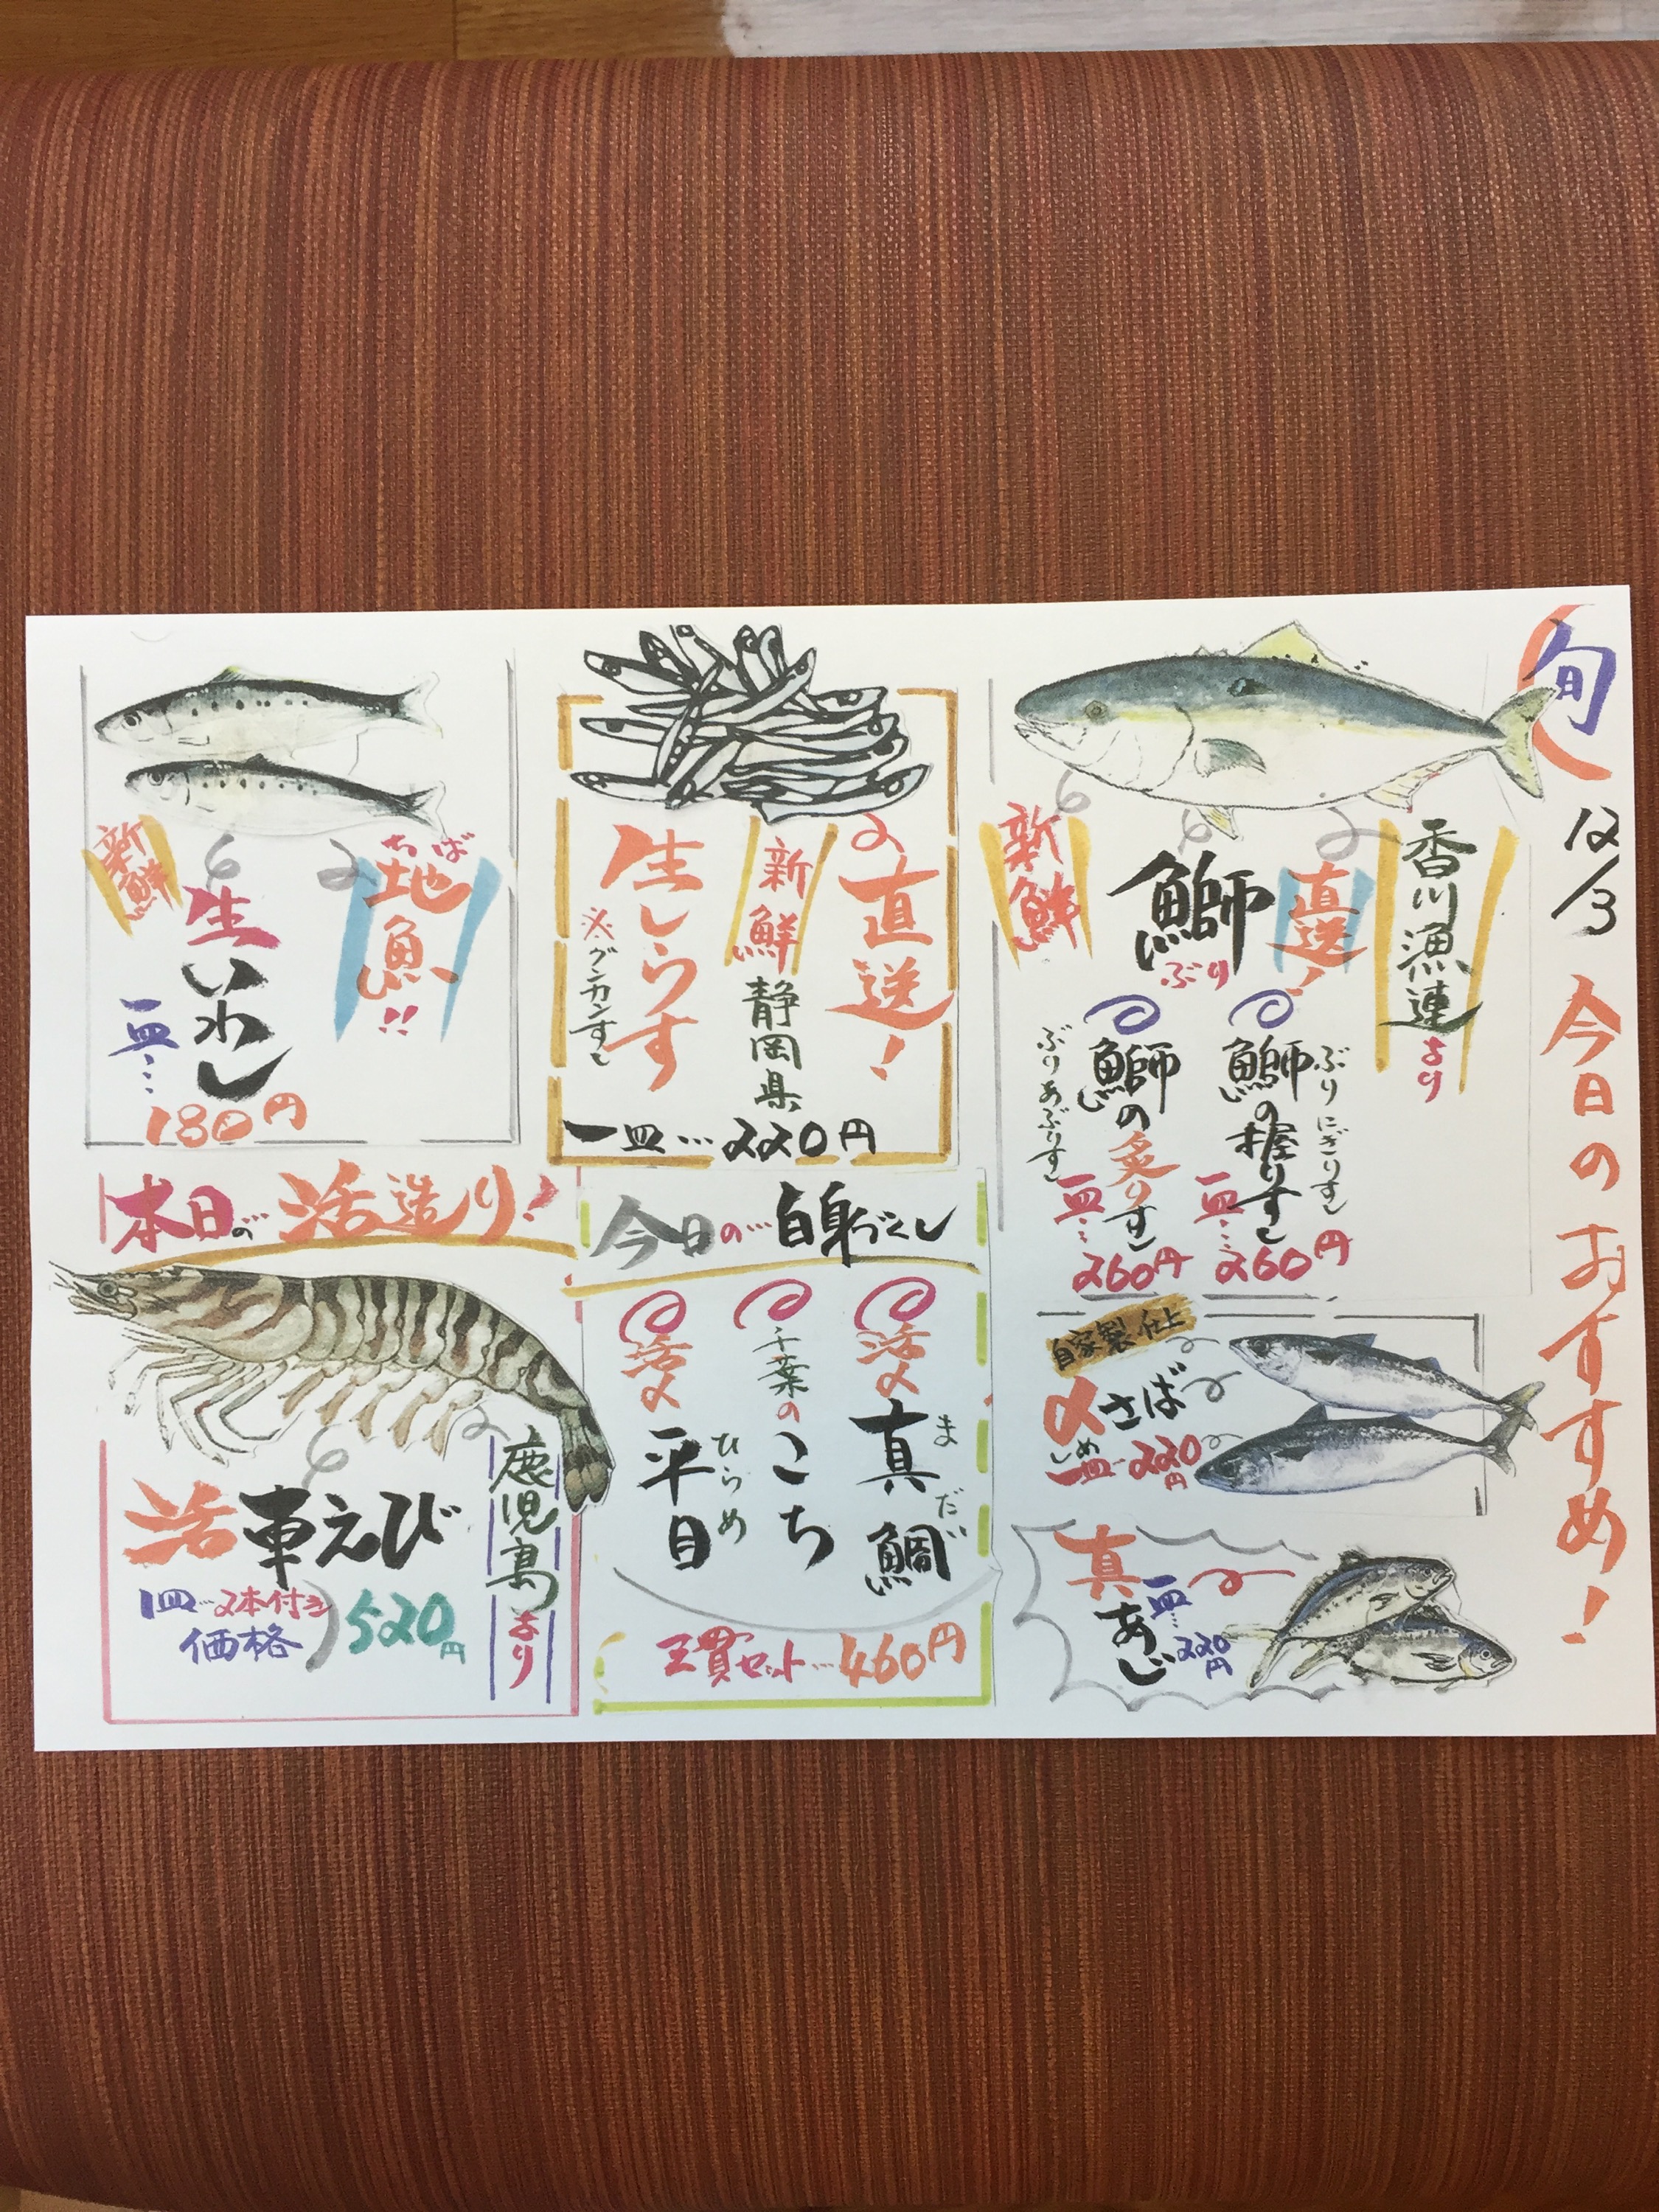 旬
12/3 今日のおすすめ!
香川漁連より
直送!
鰤
ぶり
新鮮
鰤の握りすし
ぶりにぎりすし
一皿…260円
鰤の炙りすし
ぶりあぶりすし
一皿…260円
自家製仕上
〆さば
しめ
一皿…220円
真あじ
一皿…220円
直送!
新鮮
静岡県
生しらす
※グンカンすし
一皿…220円
今日の…白身づくし
活〆
真鯛
まだい
千葉の
こち
活〆
平目
ひらめ
三貫セット…460円
ちば
地魚!!
新鮮
生いわし
一皿…
180円
本日の…活造り!
鹿児島より
活車えび
1皿…2本付き
価格
520円